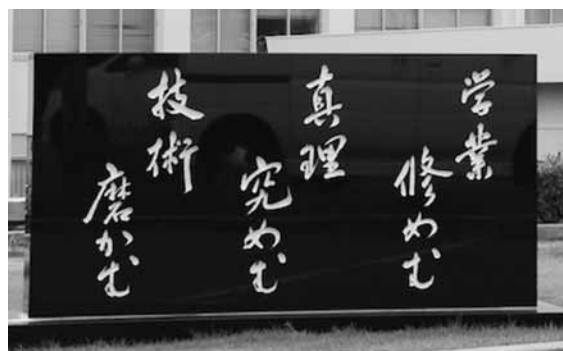 学業
修めむ
真理
究めむ
技術
磨かむ